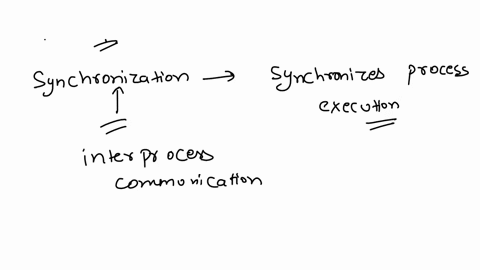 Synchronization → Synchronizes process
execution
interprocess
communication